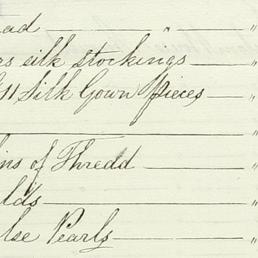 ead "
rs silk stockings "
G11 Silk Gown pieces "
"
ins of Thredd "
lds "
lse Pearls "